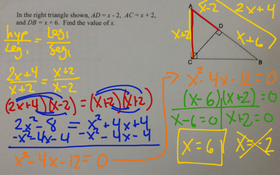 In the right triangle shown, AD = x - 2, AC = x + 2,
and DB = x + 6. Find the value of x.
hyp/Leg₁ = Leg₁/seg₁
A
x-2
2x+4
x+2
D
x+6
C
B
2x+4/x+2 = x+2/x-2
(2x+4)(x-2) = (x+2)(x+2)
2x² - 8 = x² + 4x + 4
-x² -4x -4 -x² -4x -4
x² - 4x - 12 = 0
x² - 4x - 12 = 0
(x-6)(x+2) = 0
x-6=0 x+2=0
x = 6 x = -2